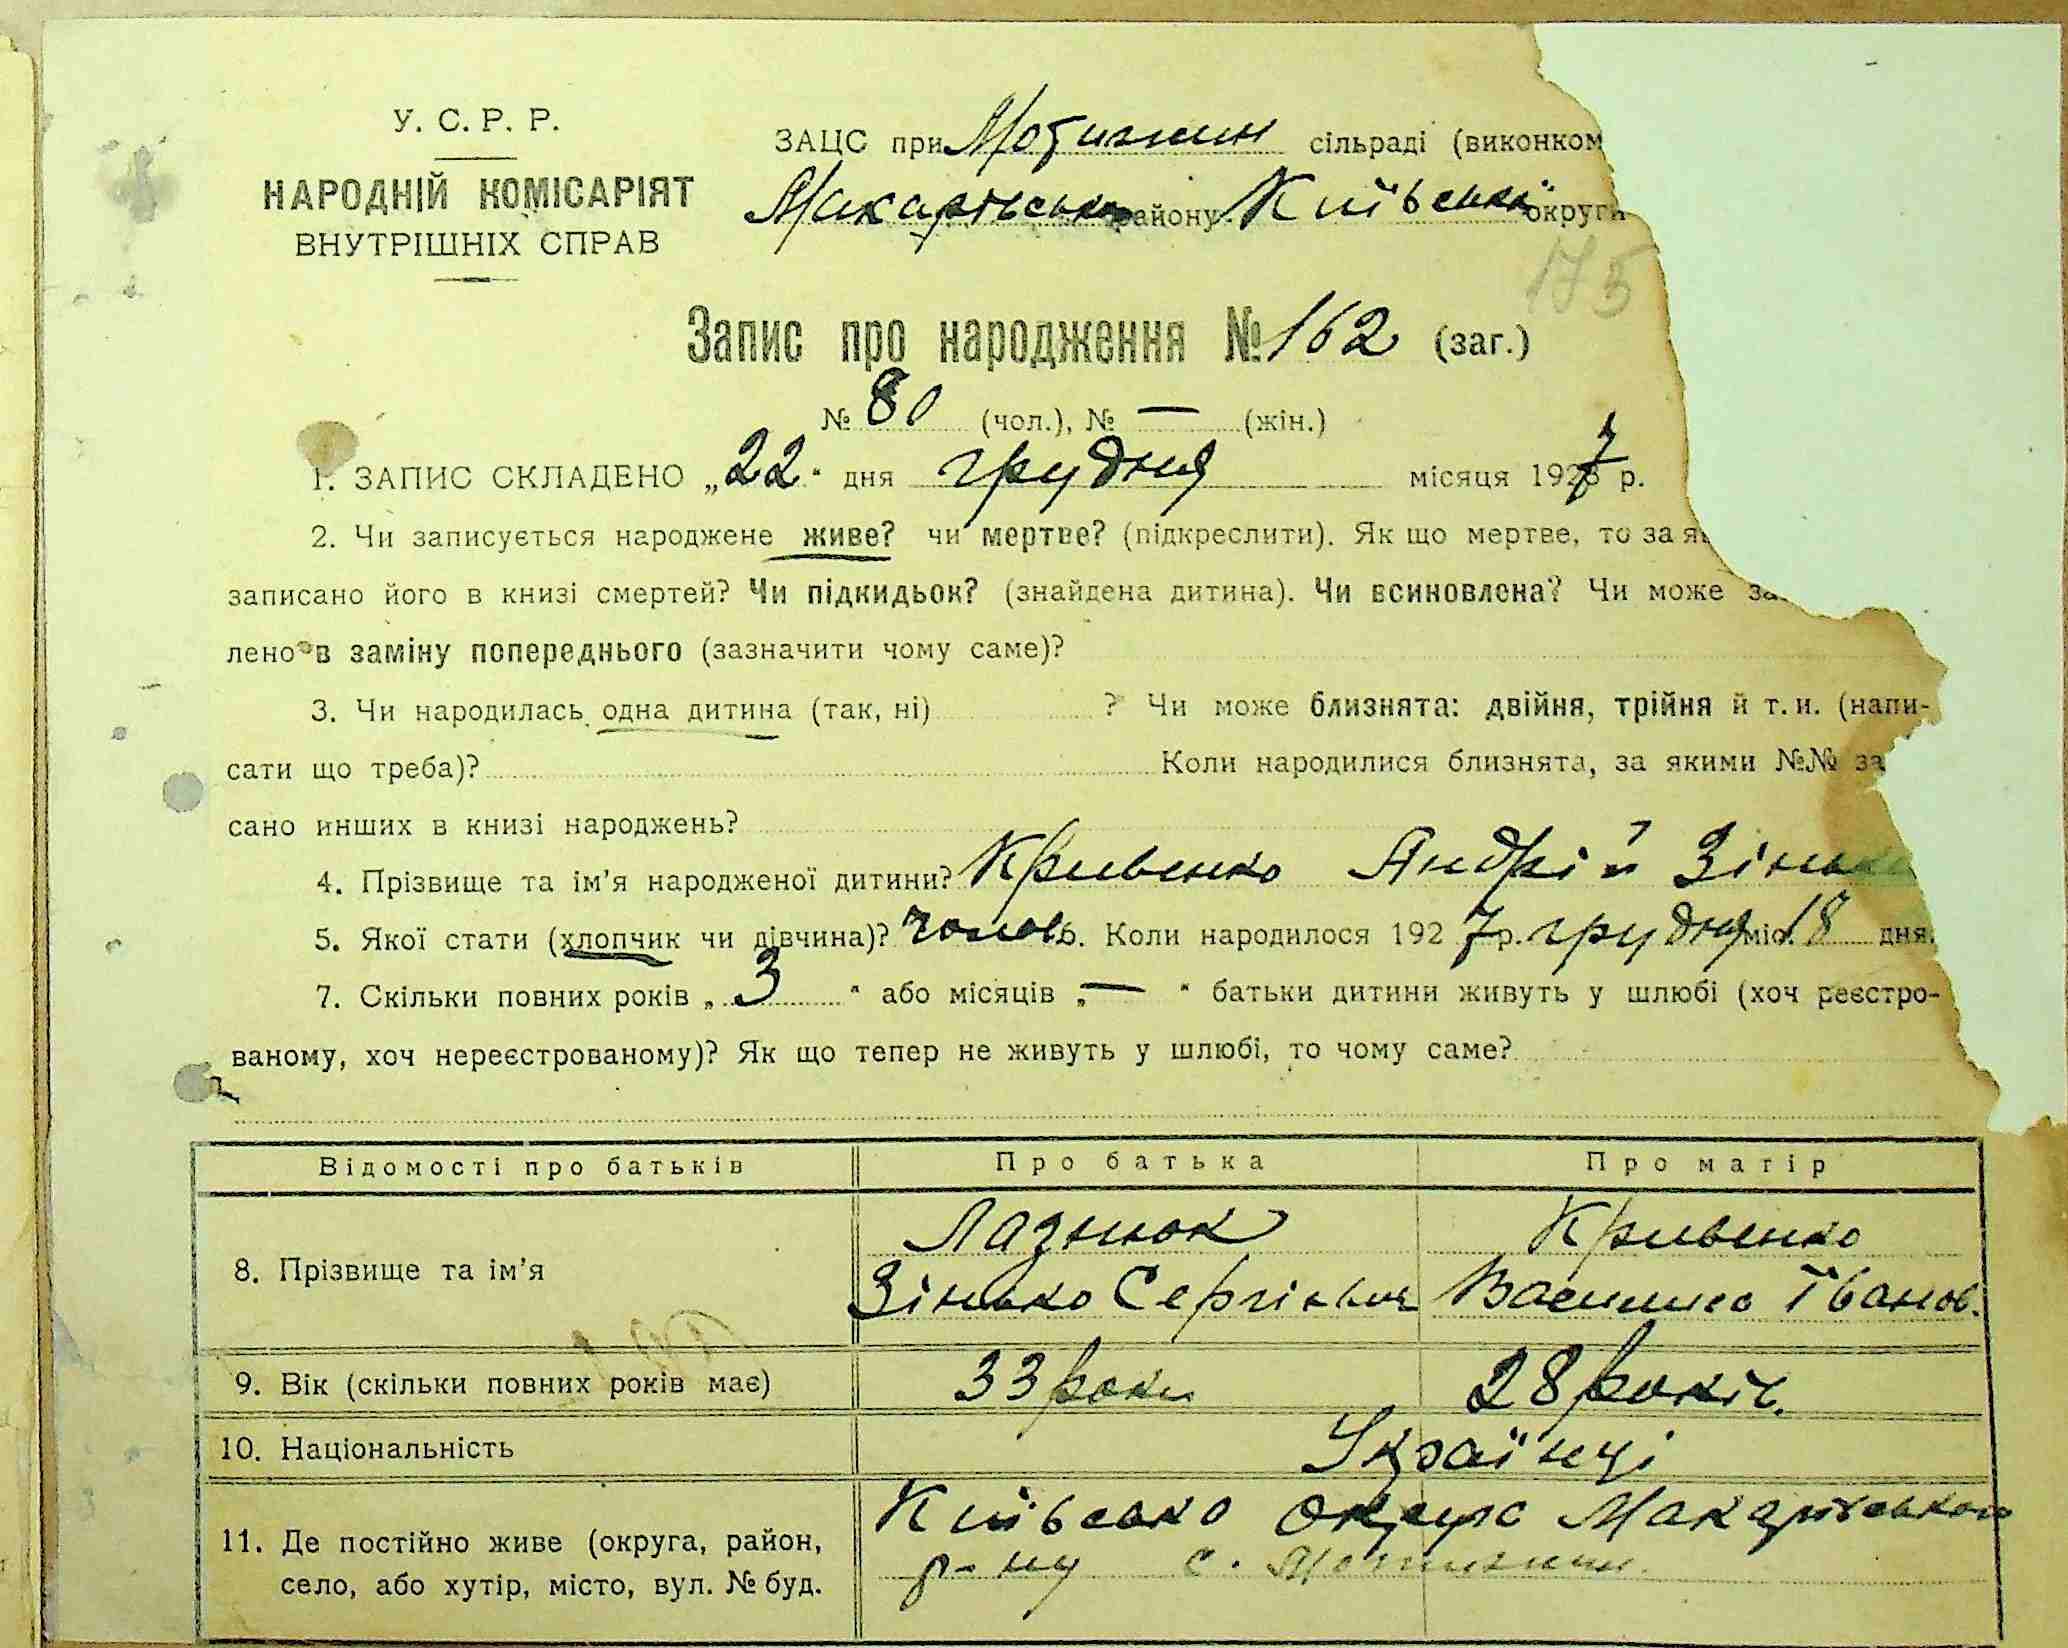 У. С. Р. Р.
НАРОДНІЙ КОМІСАРІЯТ
ВНУТРІШНІХ СПРАВ
ЗАЦС при Мотижин сільраді (виконком
Макарівсько району Київсько округи
175
Запис про народження № 162 (заг.)
№ 80 (чол.), № — (жін.)
1. ЗАПИС СКЛАДЕНО „22“ дня грудня місяця 1927 р.
2. Чи записується народжене живе? чи мертве? (підкреслити). Як що мертве, то за
записано його в книзі смертей? Чи підкидьок? (знайдена дитина). Чи всиновлена? Чи може
лено в заміну попереднього (зазначити чому саме)?
3. Чи народилась одна дитина (так, ні) ? Чи може близнята: двійня, трійня й т. и. (напи-
сати що треба)? Коли народилися близнята, за якими №№ за
сано инших в книзі народжень?
4. Прізвище та ім’я народженої дитини? Кривенко Андрій Зіньк
5. Якої стати (хлопчик чи дівчина)? чолов. 6. Коли народилося 1927 р. грудня міс. 18 дня.
7. Скільки повних років „3“ або місяців „—“ батьки дитини живуть у шлюбі (хоч реєстро-
ваному, хоч нереєстрованому)? Як що тепер не живуть у шлюбі, то чому саме?
Відомості про батьків Про батька Про матір
8. Прізвище та ім’я
Лазнюк
Зінько Сергієвич
Кривенко
Василина Іванов.
9. Вік (скільки повних років має) 33 роки 28 років.
10. Національність Українці
11. Де постійно живе (округа, район,
село, або хутір, місто, вул. № буд.
Київсько округа Макарівського
р-ну с. Мотижин.